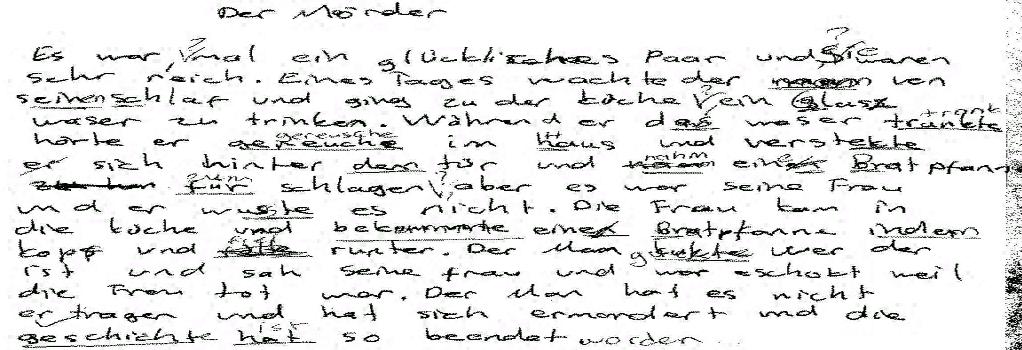 Der Mörder
Es war, ? mal ein glücklisches Paar und ? Sie waren
sehr reich. Eines Tages wachte der von
seinenschlaf und ging zu der küche ? ein Glas
waser zu trinken. Während er das waser trankte trank
hörte er gereusche im Haus und verstekte
er sich hinter dem tür und nahm einen Bratpfann
zum für schlagen ?, aber es war seine Frau
und er wuste es nicht. Die Frau kam in
die küche und bekommte einen Bratpfanne indem
kopf und runter. Der Man gukte wer der
ist und sah seine frau und war eschokt weil
die Frau tot war. Der Man hat es nicht
ertragen und hat sich ermordert und die
geschichte hat ist so beendet worden...